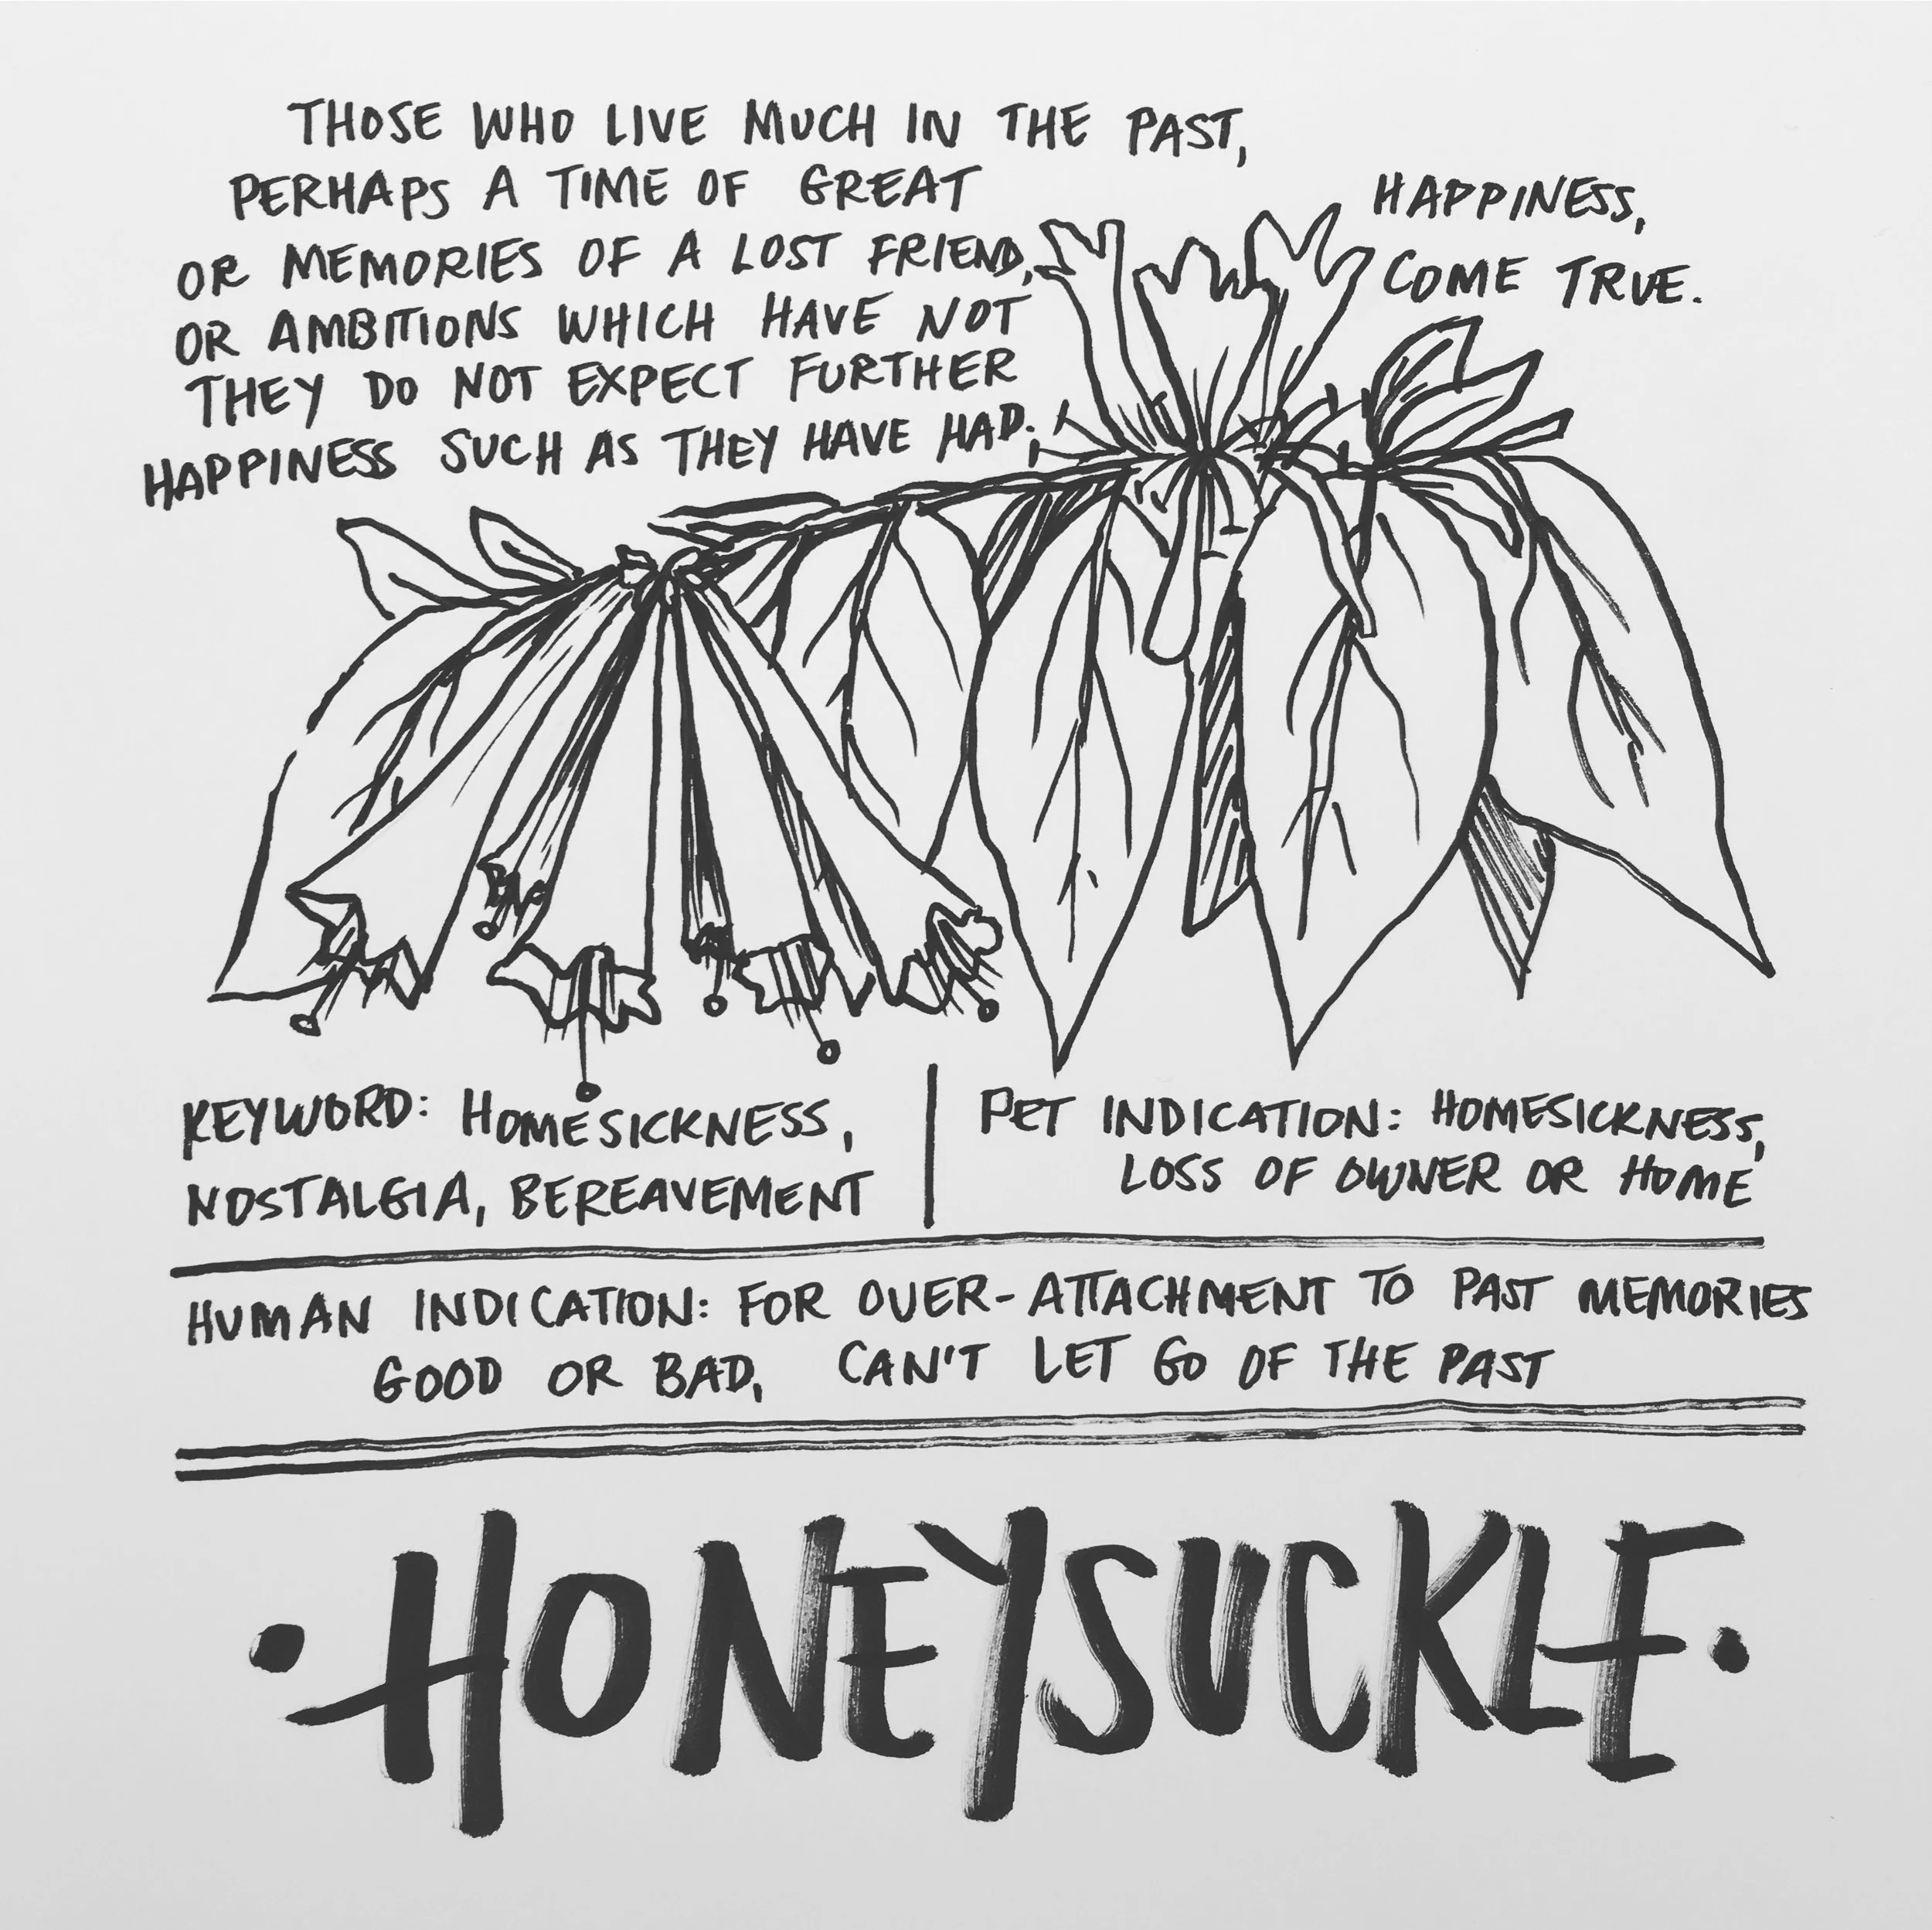 THOSE WHO LIVE MUCH IN THE PAST,
PERHAPS A TIME OF GREAT HAPPINESS,
OR MEMORIES OF A LOST FRIEND,
OR AMBITIONS WHICH HAVE NOT COME TRUE.
THEY DO NOT EXPECT FURTHER
HAPPINESS SUCH AS THEY HAVE HAD.
KEYWORD: HOMESICKNESS,
NOSTALGIA, BEREAVEMENT
PET INDICATION: HOMESICKNESS,
LOSS OF OWNER OR HOME
HUMAN INDICATION: FOR OVER-ATTACHMENT TO PAST MEMORIES
GOOD OR BAD, CAN'T LET GO OF THE PAST
• HONEYSUCKLE •